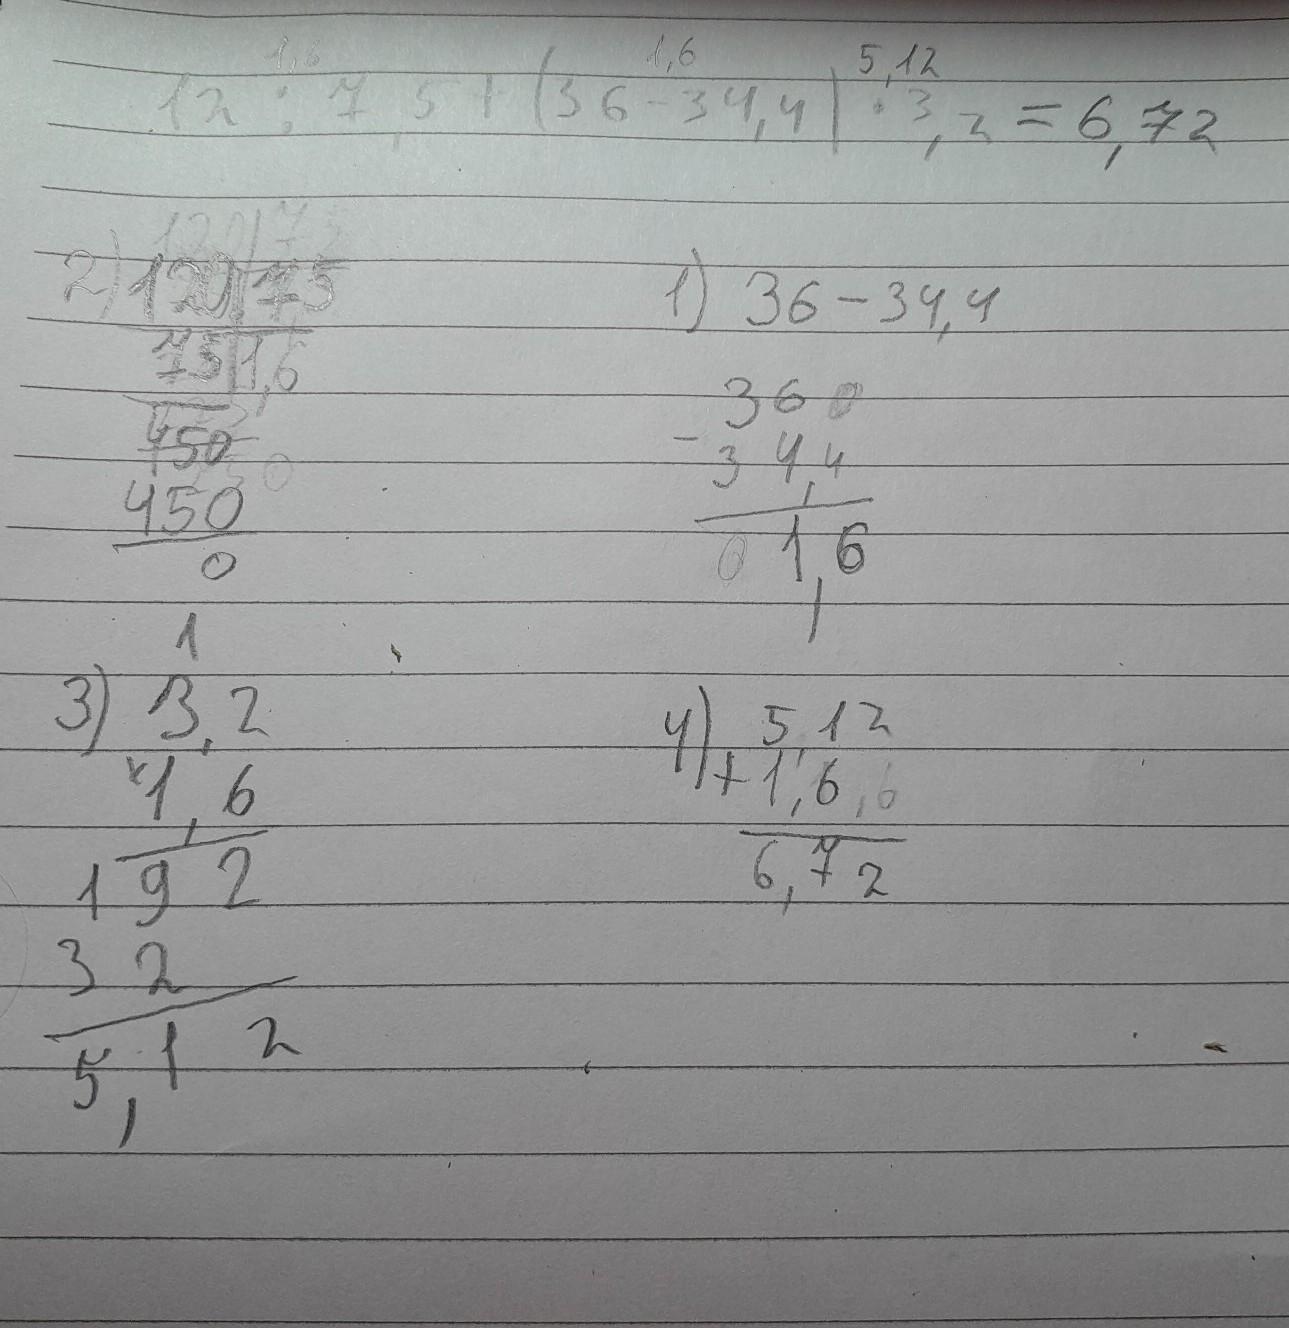 1,6 1,6 5,12
12 : 7,5 + (36 - 34,4) · 3,2 = 6,72
120 75
2) 120 75
75 1,6
450
450
0
1) 36 - 34,4
36 0
- 34,4
0 1,6
1
3) 3,2
× 1,6
1 9 2
3 2
5,1 2
4) 5,12
+ 1,6
6,72